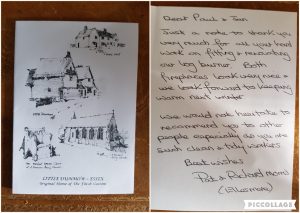 LITTLE DUNMOW - ESSEX
Original Home of The Flitch Custom
Dear Paul & Jan
Just a note to thank you
very much for all your hard
work on fitting & renovating
our log burner. Both
fireplaces look very nice &
we look forward to keeping
warm next winter.
We would not hesitate to
recommend you to other
people especially as you are
such clean & tidy workers
Best wishes
Pat & Richard
PICCOLLAGE